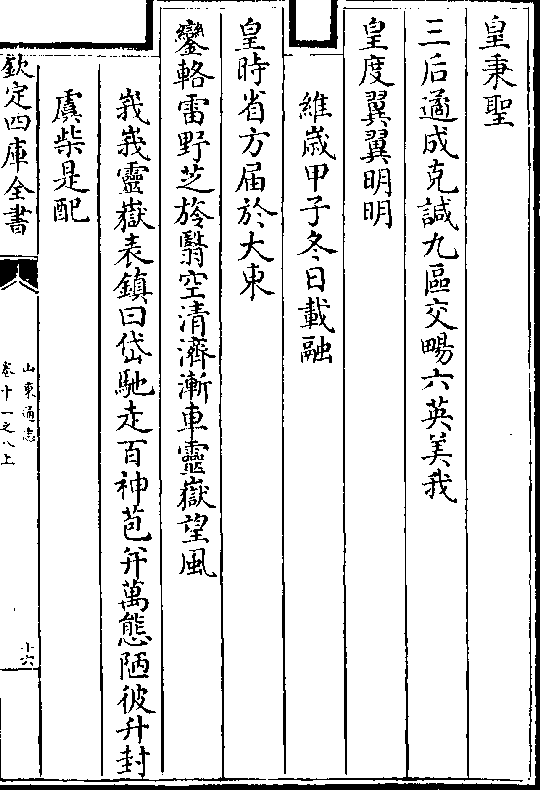 皇秉聖
三后遹成克諴九區交暢六英美我
皇度翼翼明明
維歳甲子冬日載融
皇時省方届於大東
鑾輅雷野芝旍翳空清濟漸車靈嶽望風
峩峩靈嶽表鎮曰岱馳走百神苞弁萬態陋彼升封
虞柴是配
欽定四庫全書
山東通志
卷十一之八上
十六